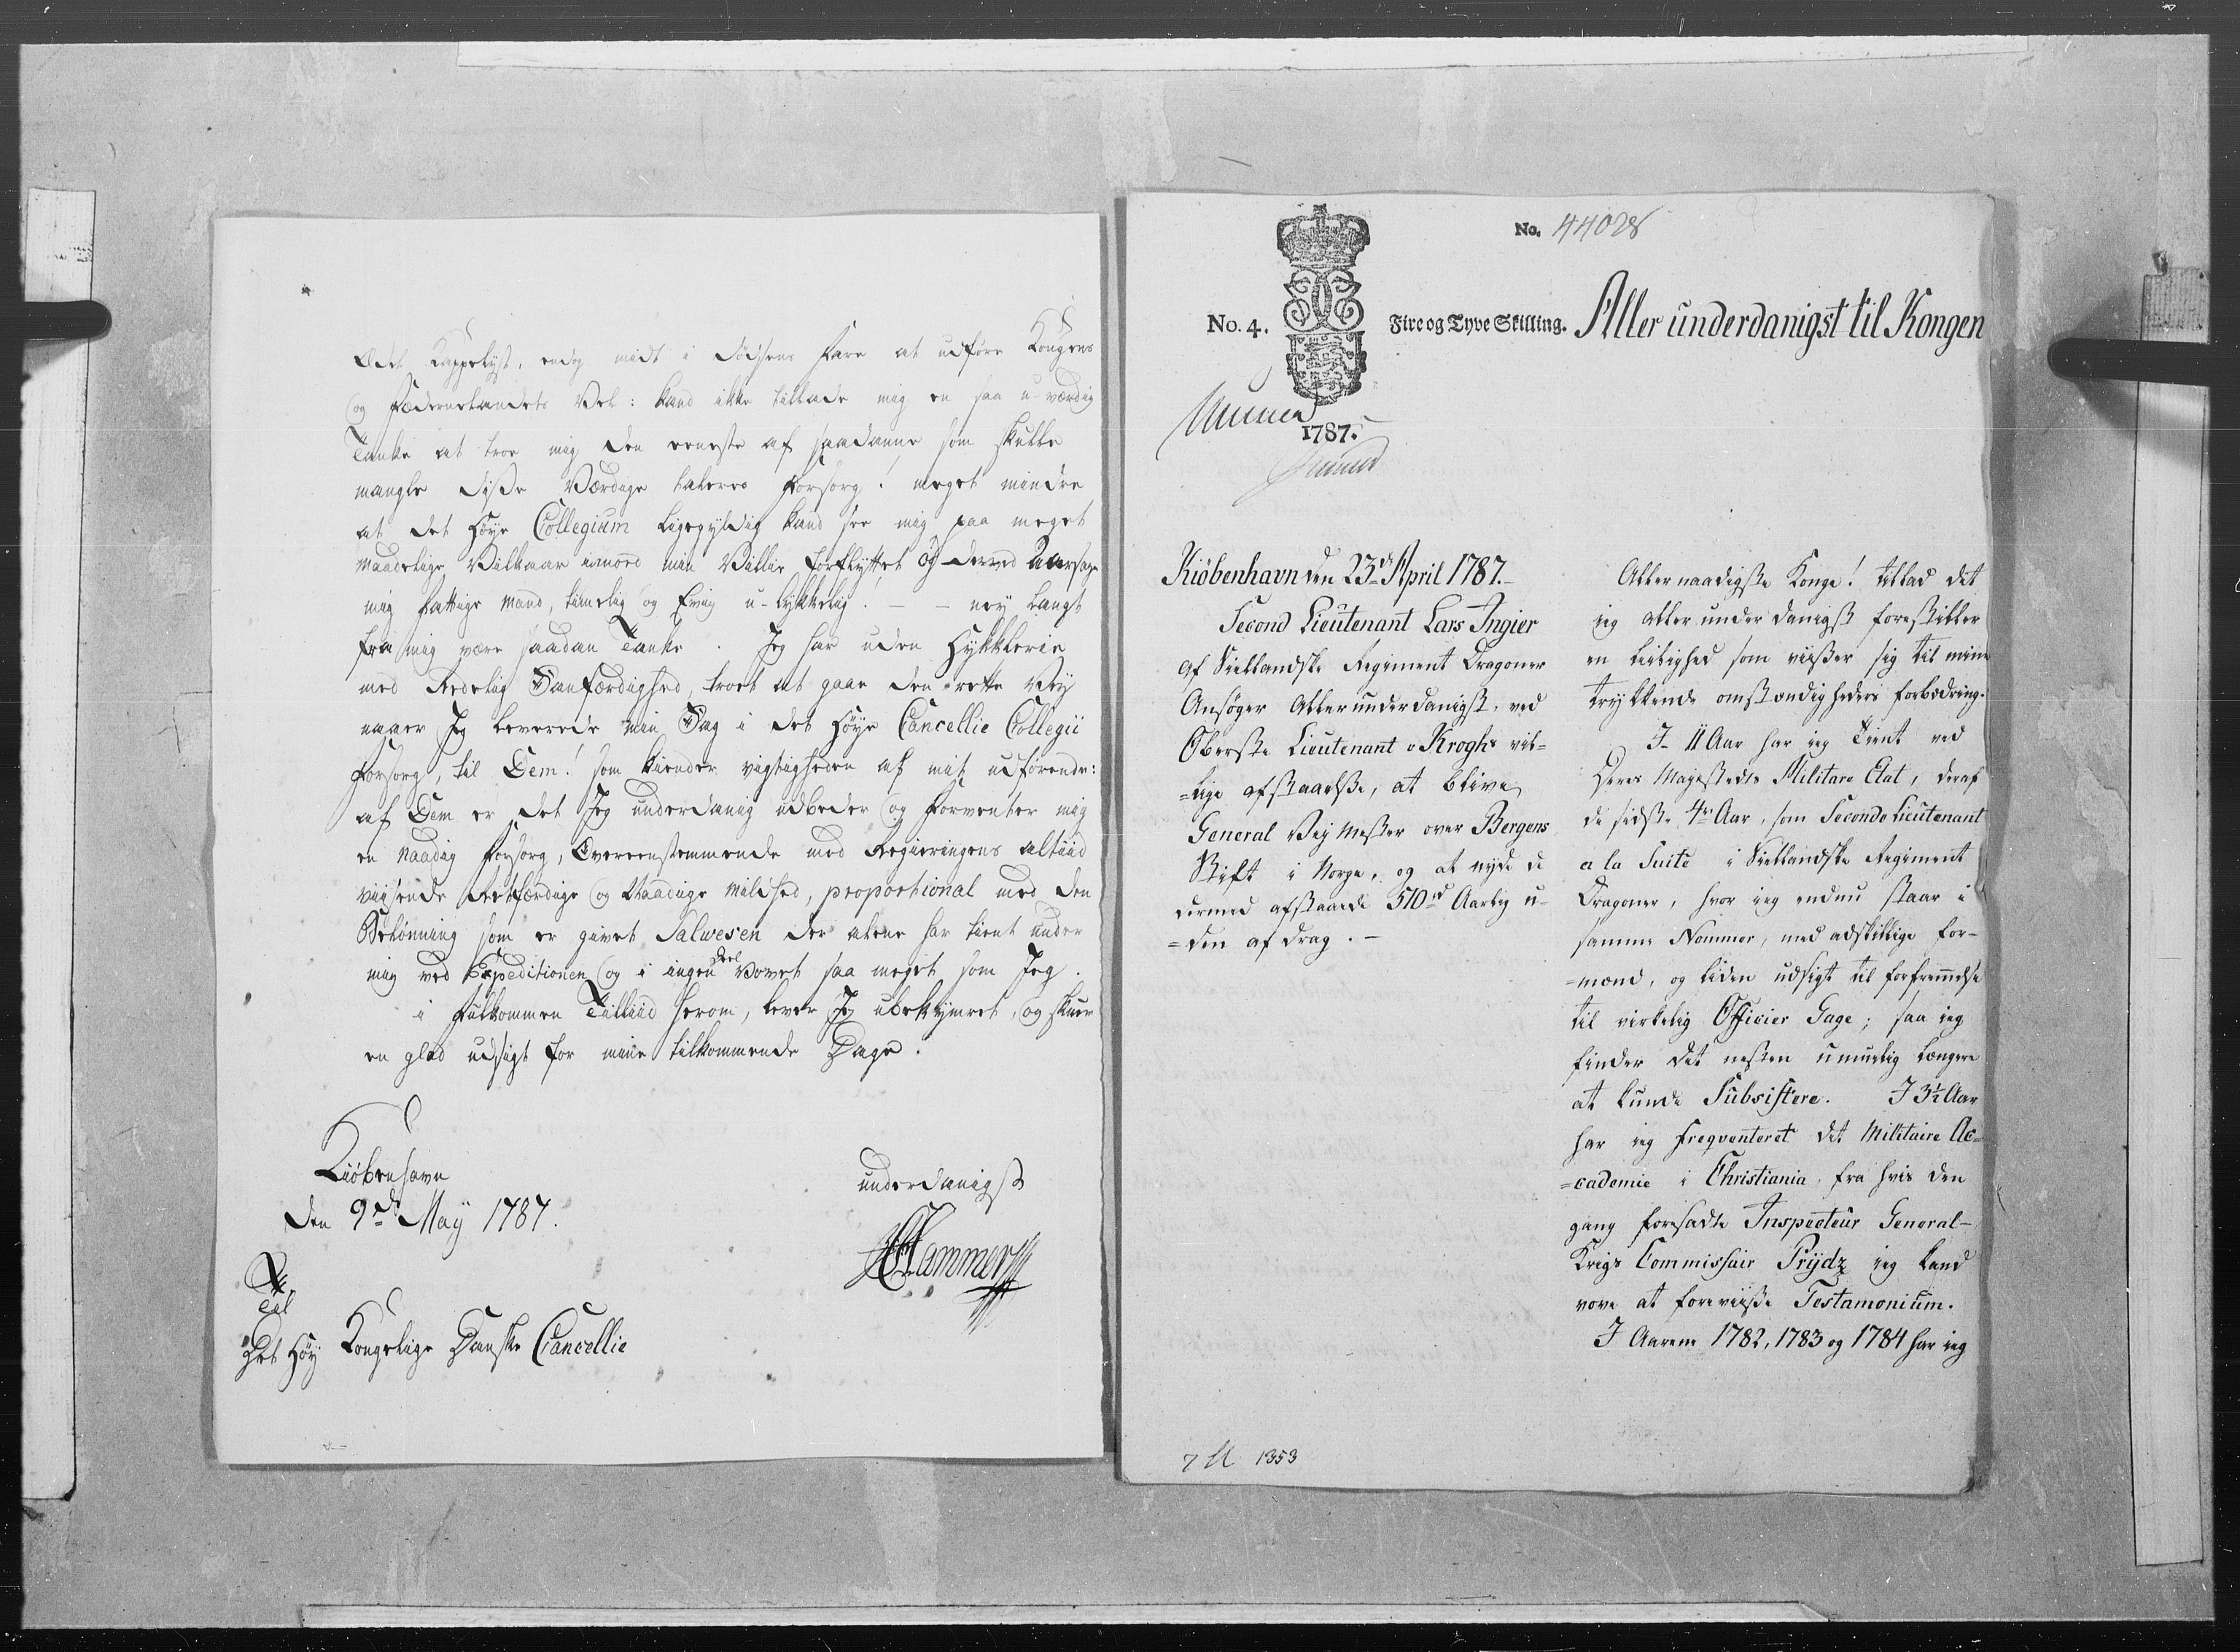 Ædel Kappelyst, endog midt i dødsens Fare at udføre Kongens
og Fædernelandets Vel: kand ikke tillade mig en saa u-værdig
Tanke at troe mig den eeneste af saadanne som skulle
mangle disse Værdige Fatères Forsorg! meget mindre
at det Høye Collegium ligegyldig kand see mig paa meget
maadelige Vilkaar imod min Villie forflyttet og derved Aarsage
mig fattige Mand, timelig og Evig u-lykkelig! — — ney langt
fra mig være saadan Tanke. Jeg har uden Hykklerie
med Redelig Sanfærdighed, troet at gaae den rette Vey
naaer Jeg leverede min Sag i det Høye Cancellie Collegii
Forsorg, til Dem! som kiender vigtigheden af mit udførende:
af Dem er det Jeg underdanig udbeder og forventer mig
en Naadig Forsorg, Overeenstemmende med Regieringens altiid
viisende Retfærdige og Naadige Mildhed, proportional med den
Belønning som er givet Salvesen der alene har tient under
mig ved Expeditionen og i ingen Deel Vovet saa meget som Jeg.
i Fulkommen Tilliid herom, lever Jeg ubekymret, og skuer
en glad udsigt for mine tilkommende Dage.
Kiöbenhavn
den 9de May 1787.
underdanigst
Hammer
Til
Det Høy Kongelige Danske Cancellie
No. 44028
No. 4.
Fire og Tyve Skilling.
Aller underdanigst til Kongen
1787.
Kiöbenhavn den 23de April 1787.
Second Lieutenant Lars Ingier
af Siellandske Regiment Dragoner
Ansøger Allerunderdanigst, ved
Oberste Lieutenant v Kroghs vil=
=lige afstaaelsse, at blive
General Vej Mester over Bergens
Stift i Norge, og at nyde de
dermed afstaaede 510 rd Aarlig u=
=den afdrag. —
Allernaadigste Konge! tillad det
jeg aller under danigst forestiller
en leilighed som viisser sig til mine
trykkende omstændigheders forbedring.
I 11 Aar har ieg Tient ved
Deres Majestedts Militare Etat, deraf
de sidste 4re Aar, som Seconde Lieutenant
a la Suite i Siellandske Regiment
Dragoner, hvor ieg endnu staar i
samme Nommer, med adskillige for=
=mænd, og liden udsigt til forfremmelse
til virkelig Officier Gage; saa ieg
finder det nesten umuelig længere
at kunde Subsistere. I 3½ Aar
har ieg freqventeret det Militaire Ac=
=cademie i Christiania, fra hvis den
gang foresadte Inspecteur General-
Krigs Commissair Prydz ieg kand
vove at foreviisse Testamonium.
I Aarene 1782, 1783 og 1784 har ieg
1353